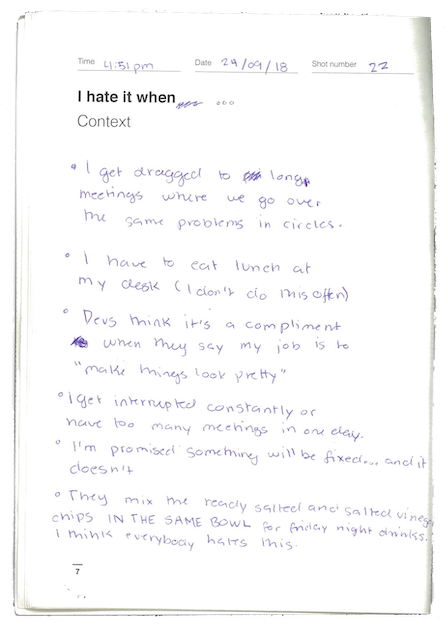 Time 4:51pm Date 29/09/18 Shot number 22
I hate it when ...
Context
• I get dragged to long
meetings where we go over
the same problems in circles.
• I have to eat lunch at
my desk (I don't do this often)
• Devs think it's a compliment
when they say my job is to
"make things look pretty"
• I get interrupted constantly or
have too many meetings in one day.
• I'm promised something will be fixed... and it
doesn't
• They mix the ready salted and salted vinegar
chips IN THE SAME BOWL for friday night drinks.
I think everybody hates this.
7